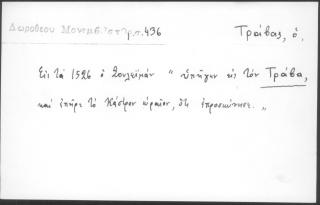 Δωροθεου Μονεμβ.Ἱστρ.σ.436
Τράβας, ὁ.
Εἰς τὰ 1526 ὁ Σουλεϊμάν " ὑπῆγεν εἰς τὸν Τράβα,
καὶ ἐπῆρε τὸ Κάστρον ὡραῖον, ὅτι ἐπροσκύνησε. "